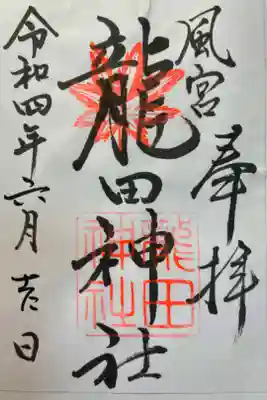 奉拝
風宮
龍田神社
龍田神社
令和四年六月吉日